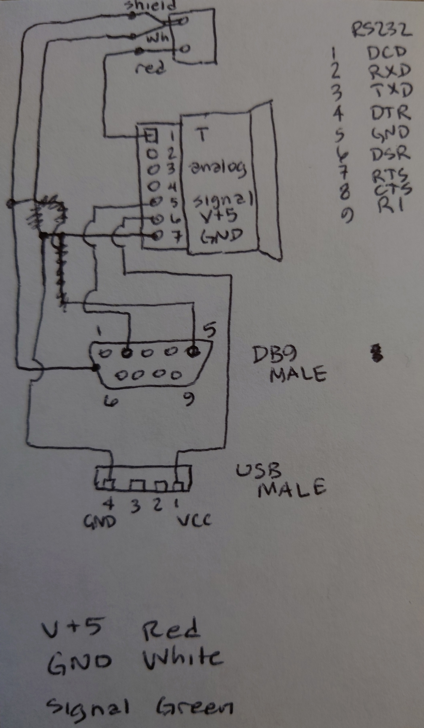 shield
Wh
red
RS232
1 DCD
2 RXD
3 TXD
4 DTR
5 GND
6 DSR
7 RTS
8 CTS
9 RI
1 T
2
3 analog
4
5 signal
6 V+5
7 GND
1 5
6 9
DB9
MALE
USB
MALE
4 3 2 1
GND VCC
V+5 Red
GND White
Signal Green